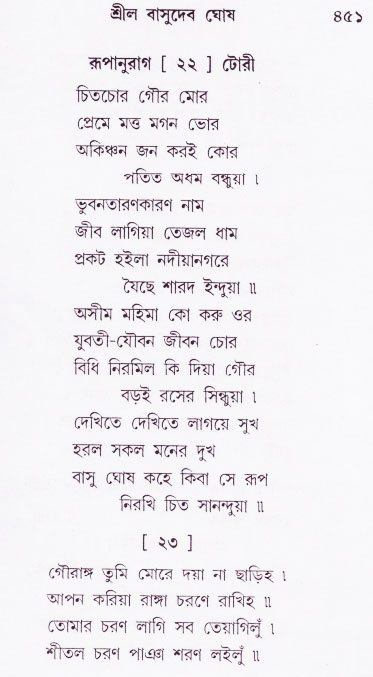 শ্রীল বাসুদেব ঘোষ ৪৫১
রূপানুরাগ [ ২২ ] টোরী
চিতচোর গৌর মোর
প্রেমে মত্ত মগন ভোর
অকিঞ্চন জন করই কোর
পতিত অধম বন্ধুয়া ।
ভুবনতারণকারণ নাম
জীব লাগিয়া তেজল ধাম
প্রকট হইলা নদীয়ানগরে
যৈছে শারদ ইন্দুয়া ॥
অসীম মহিমা কো করু ওর
যুবতী-যৌবন জীবন চোর
বিধি নিরমিল কি দিয়া গৌর
বড়ই রসের সিন্ধুয়া ।
দেখিতে দেখিতে লাগয়ে সুখ
হরল সকল মনের দুখ
বাসু ঘোষ কহে কিবা সে রূপ
নিরখি চিত সানন্দুয়া ॥
[ ২৩ ]
গৌরাঙ্গ তুমি মোরে দয়া না ছাড়িহ ।
আপন করিয়া রাঙ্গা চরণে রাখিহ ॥
তোমার চরণ লাগি সব তেয়াগিলুঁ ।
শীতল চরণ পাঞা শরণ লইলুঁ ॥